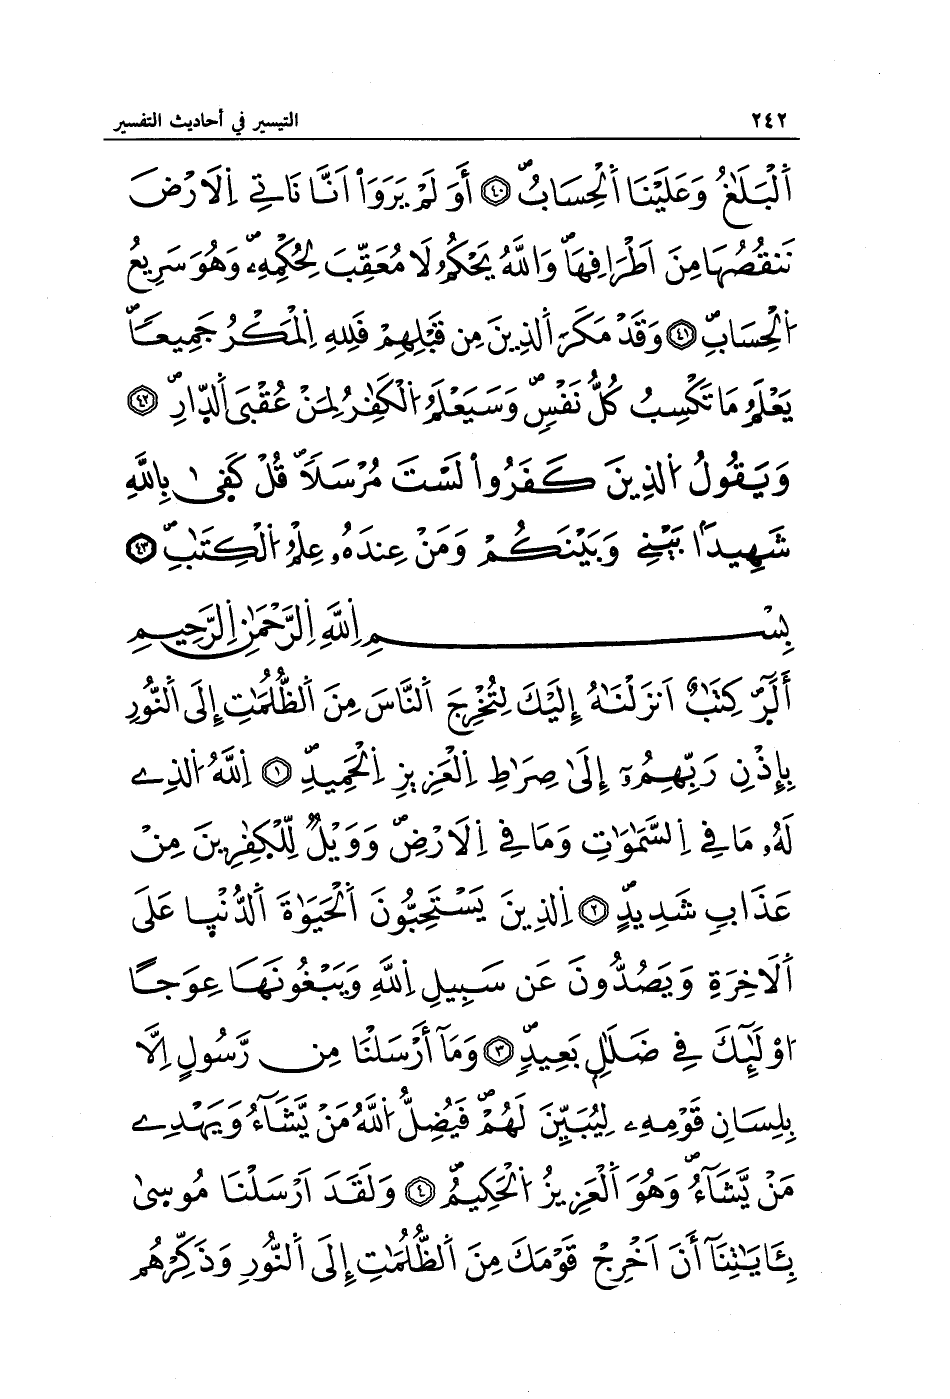 ٢٤٢ التيسير في أحاديث التفسير
اَ۬لْبَلَٰغُ وَعَلَيْنَا اَ۬لْحِسَابُۖ ٤٠ أَوَلَمْ يَرَوَاْ اَنَّا نَاتِے اِ۬لَارْضَ
نَنقُصُهَا مِنَ اَطْرَافِهَاۖ وَاللَّهُ يَحْكُمُ لَا مُعَقِّبَ لِحُكْمِهِۦۖ وَهُوَ سَرِيعُ
اُ۬لْحِسَابِۖ ٤١ وَقَدْ مَكَرَ اَ۬لذِينَ مِن قَبْلِهِمْ فَلِلهِ اِ۬لْمَكْرُ جَمِيعاًۖ
يَعْلَمُ مَا تَكْسِبُ كُلُّ نَفْسٖۖ وَسَيَعْلَمُ اُ۬لْكَٰفِرُ لِمَنْ عُقْبَى اَ۬لدّ۪ارِۖ ٤٢
وَيَقُولُ اُ۬لذِينَ كَفَرُواْ لَسْتَ مُرْسَلاًۖ قُلْ كَف۪ىٰ بِاللَّهِ
شَهِيداَۢ بَيْنِے وَبَيْنَكُمْ وَمَنْ عِندَهُۥ عِلْمُ اُ۬لْكِتَٰبِۖ ٤٣
بِسْمِ اِ۬للَّهِ اِ۬لرَّحْمَٰنِ اِ۬لرَّحِيمِ
أَلَٓرۖ كِتَٰبٌ اَنزَلْنَٰهُ إِلَيْكَ لِتُخْرِجَ اَ۬لنَّاسَ مِنَ اَ۬لظُّلُمَٰتِ إِلَى اَ۬لنُّورِ
بِإِذْنِ رَبِّهِمُۥٓ إِلَىٰ صِرَٰطِ اِ۬لْعَزِيزِ اِ۬لْحَمِيدِۖ ١ اِ۬للَّهُ اُ۬لذِے
لَهُۥ مَا فِے اِ۬لسَّمَٰوَٰتِ وَمَا فِے اِ۬لَارْضِۖ وَوَيْلٌ لِّلْكٰ۪فِرِينَ مِنْ
عَذَابٖ شَدِيدٍۖ ٢ اِ۬لذِينَ يَسْتَحِبُّونَ اَ۬لْحَيَوٰةَ اَ۬لدُّنْي۪ا عَلَى
اَ۬لَاخِرَةِ وَيَصُدُّونَ عَن سَبِيلِ اِ۬للَّهِ وَيَبْغُونَهَا عِوَجًا
اُ۟وْلَٰٓئِكَ فِے ضَلَٰلِۢ بَعِيدٖۖ ٣ وَمَآ أَرْسَلْنَا مِن رَّسُولٍ اِلَّا
بِلِسَانِ قَوْمِهِۦ لِيُبَيِّنَ لَهُمْۖ فَيُضِلُّ اُ۬للَّهُ مَنْ يَّشَآءُ وَيَهْدِے
مَنْ يَّشَآءُۖ وَهُوَ اَ۬لْعَزِيزُ اُ۬لْحَكِيمُۖ ٤ وَلَقَدَ اَرْسَلْنَا مُوس۪ىٰ
بِـَٔايَٰتِنَآ أَنَ اَخْرِجْ قَوْمَكَ مِنَ اَ۬لظُّلُمَٰتِ إِلَى اَ۬لنُّورِ وَذَكِّرْهُم